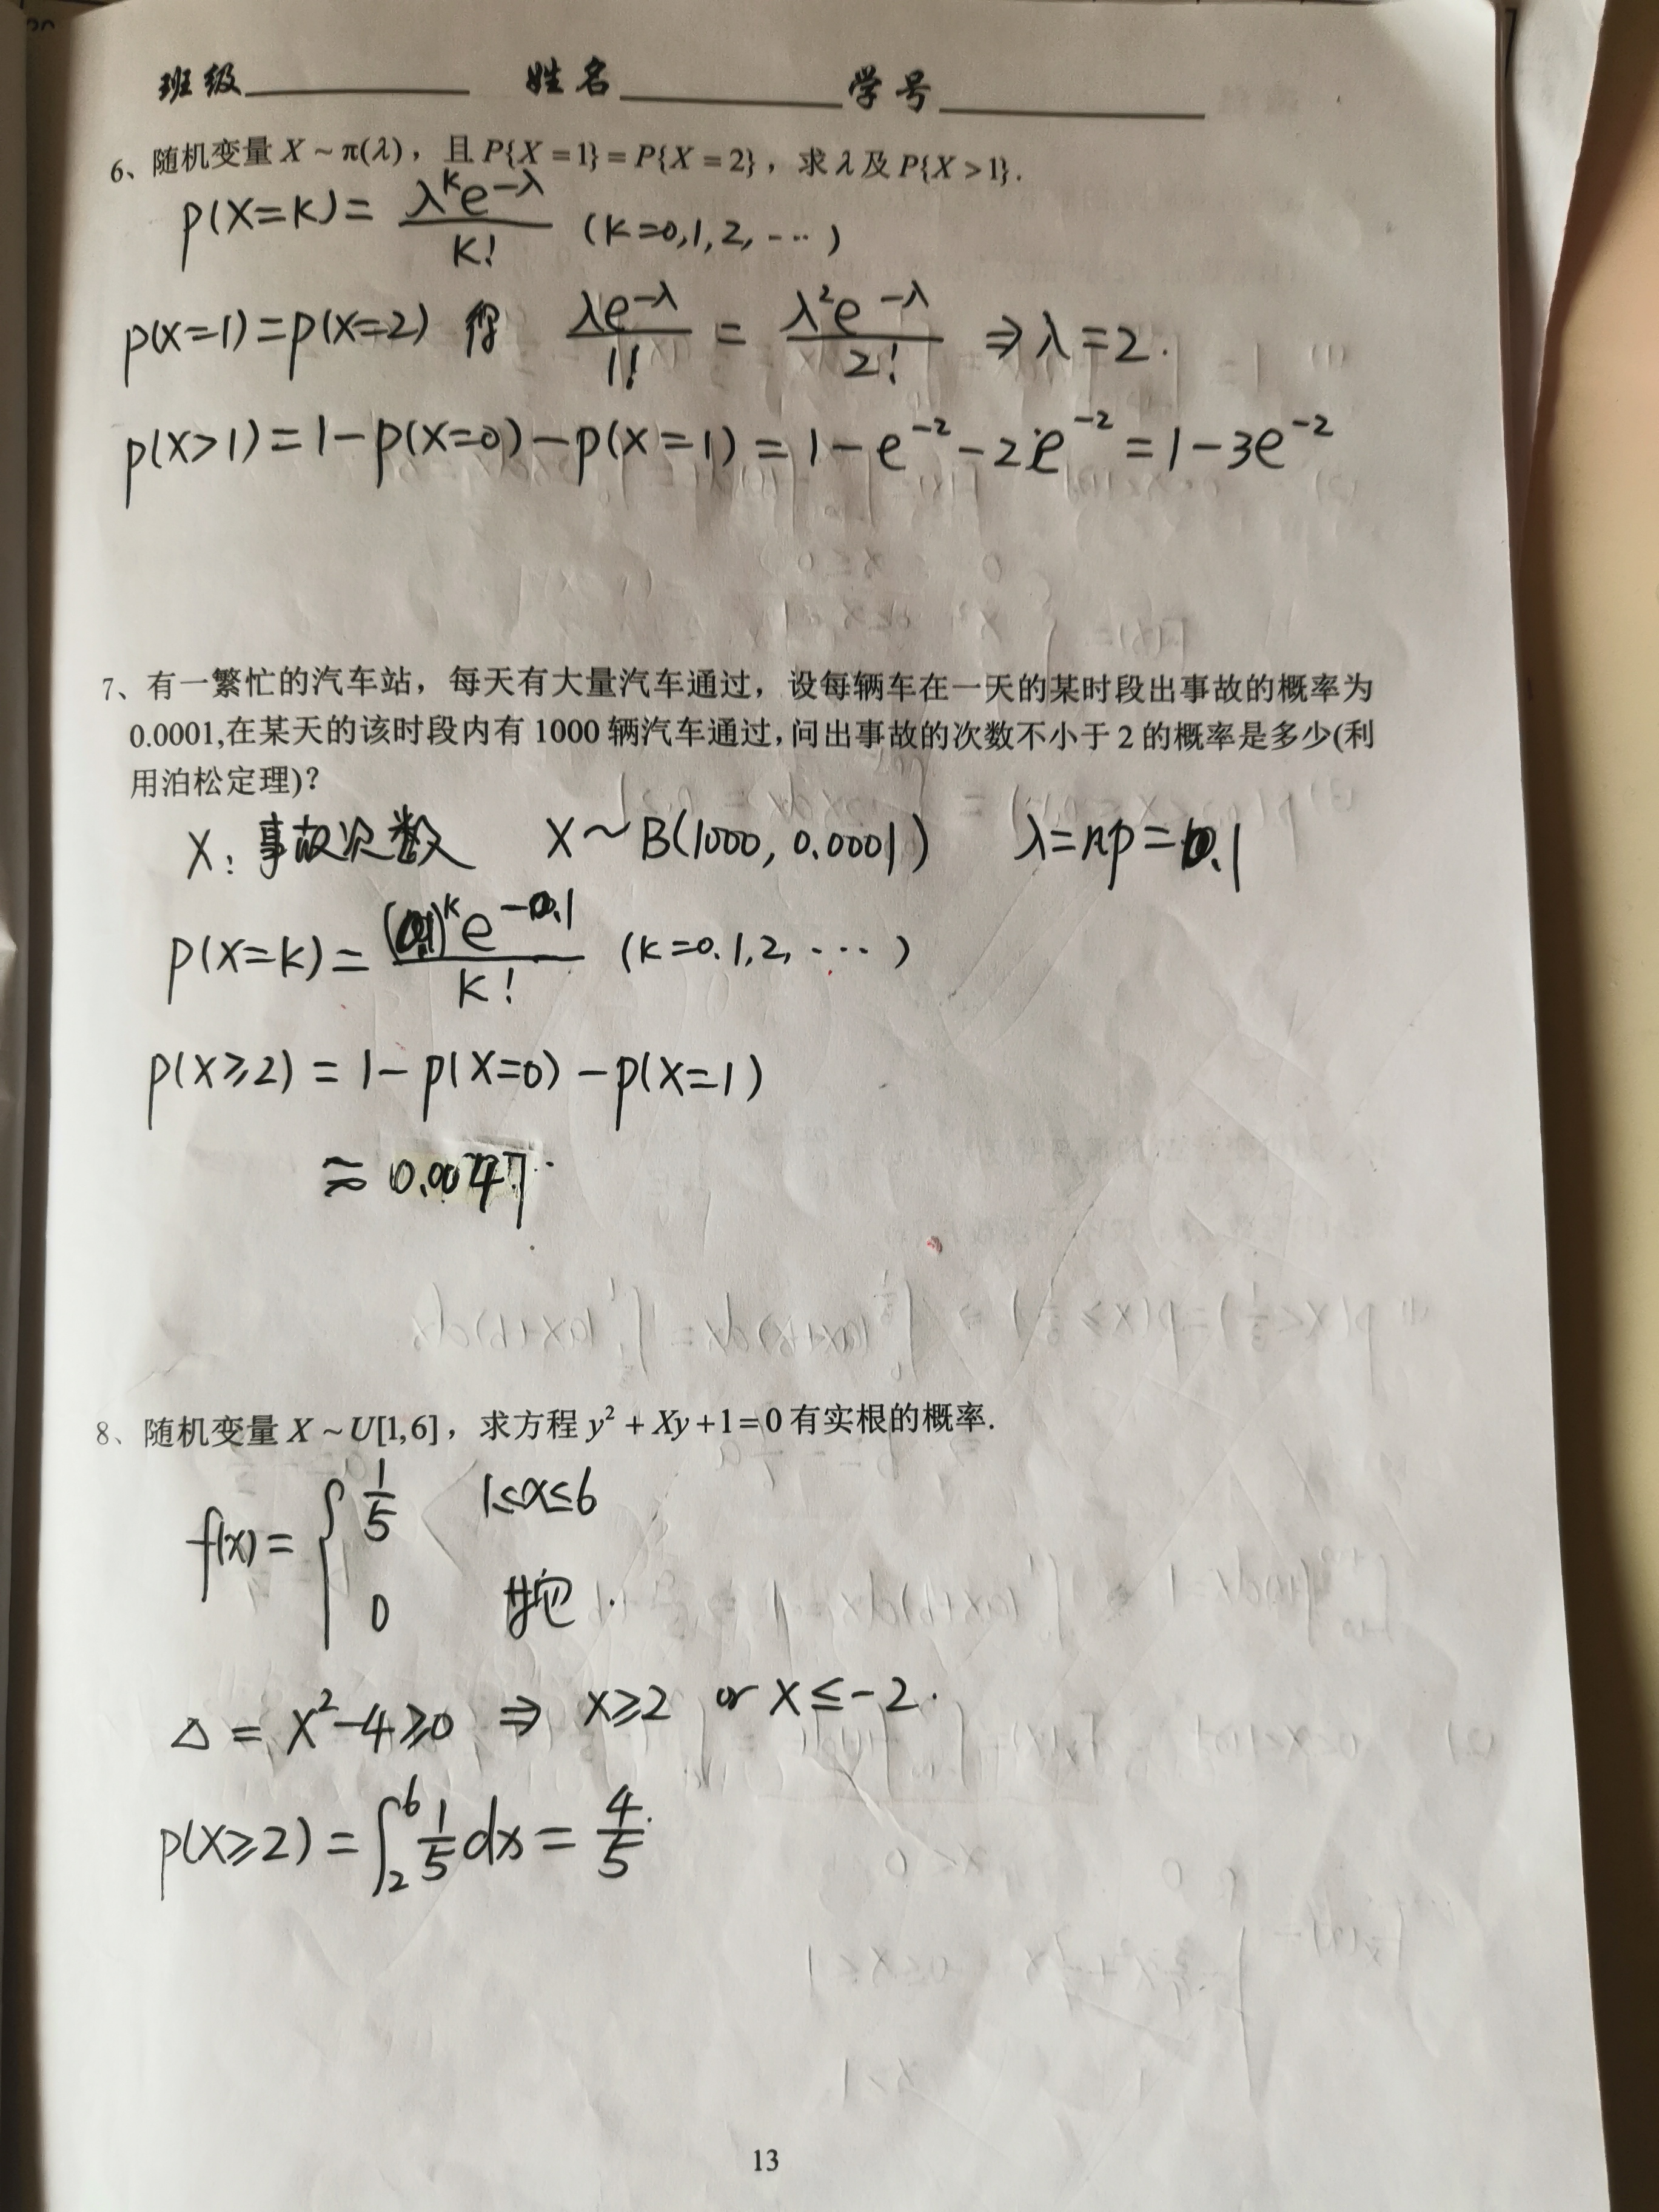 班级 姓名 学号
6、随机变量 X ~ π(λ)，且 P{X = 1} = P{X = 2}，求 λ 及 P{X > 1}.
p(X=K) = λ^K e^{-λ} / K! (K=0,1,2,⋯)
p(X=1)=p(X=2) 得 λe^{-λ} / 1! = λ²e^{-λ} / 2! ⇒ λ=2.
p(X>1) = 1-p(X=0)-p(X=1) = 1-e^{-2}-2e^{-2} = 1-3e^{-2}
7、有一繁忙的汽车站，每天有大量汽车通过，设每辆车在一天的某时段出事故的概率为
0.0001,在某天的该时段内有 1000 辆汽车通过,问出事故的次数不小于 2 的概率是多少(利
用泊松定理)?
X: 事故次数 X~B(1000, 0.0001) λ=np=0.1
p(X=K) = (0.1)^K e^{-0.1} / K! (K=0.1,2,⋯)
p(X≥2) = 1-p(X=0)-p(X=1)
≈ 0.0047.
8、随机变量 X ~ U[1,6]，求方程 y² + Xy +1=0 有实根的概率.
f(x) = { 1/5 1≤x≤6
0 其它.
△ = X²-4≥0 ⇒ X≥2 or X≤-2.
p(X≥2) = ∫₂⁶ 1/5 dx = 4/5.
13